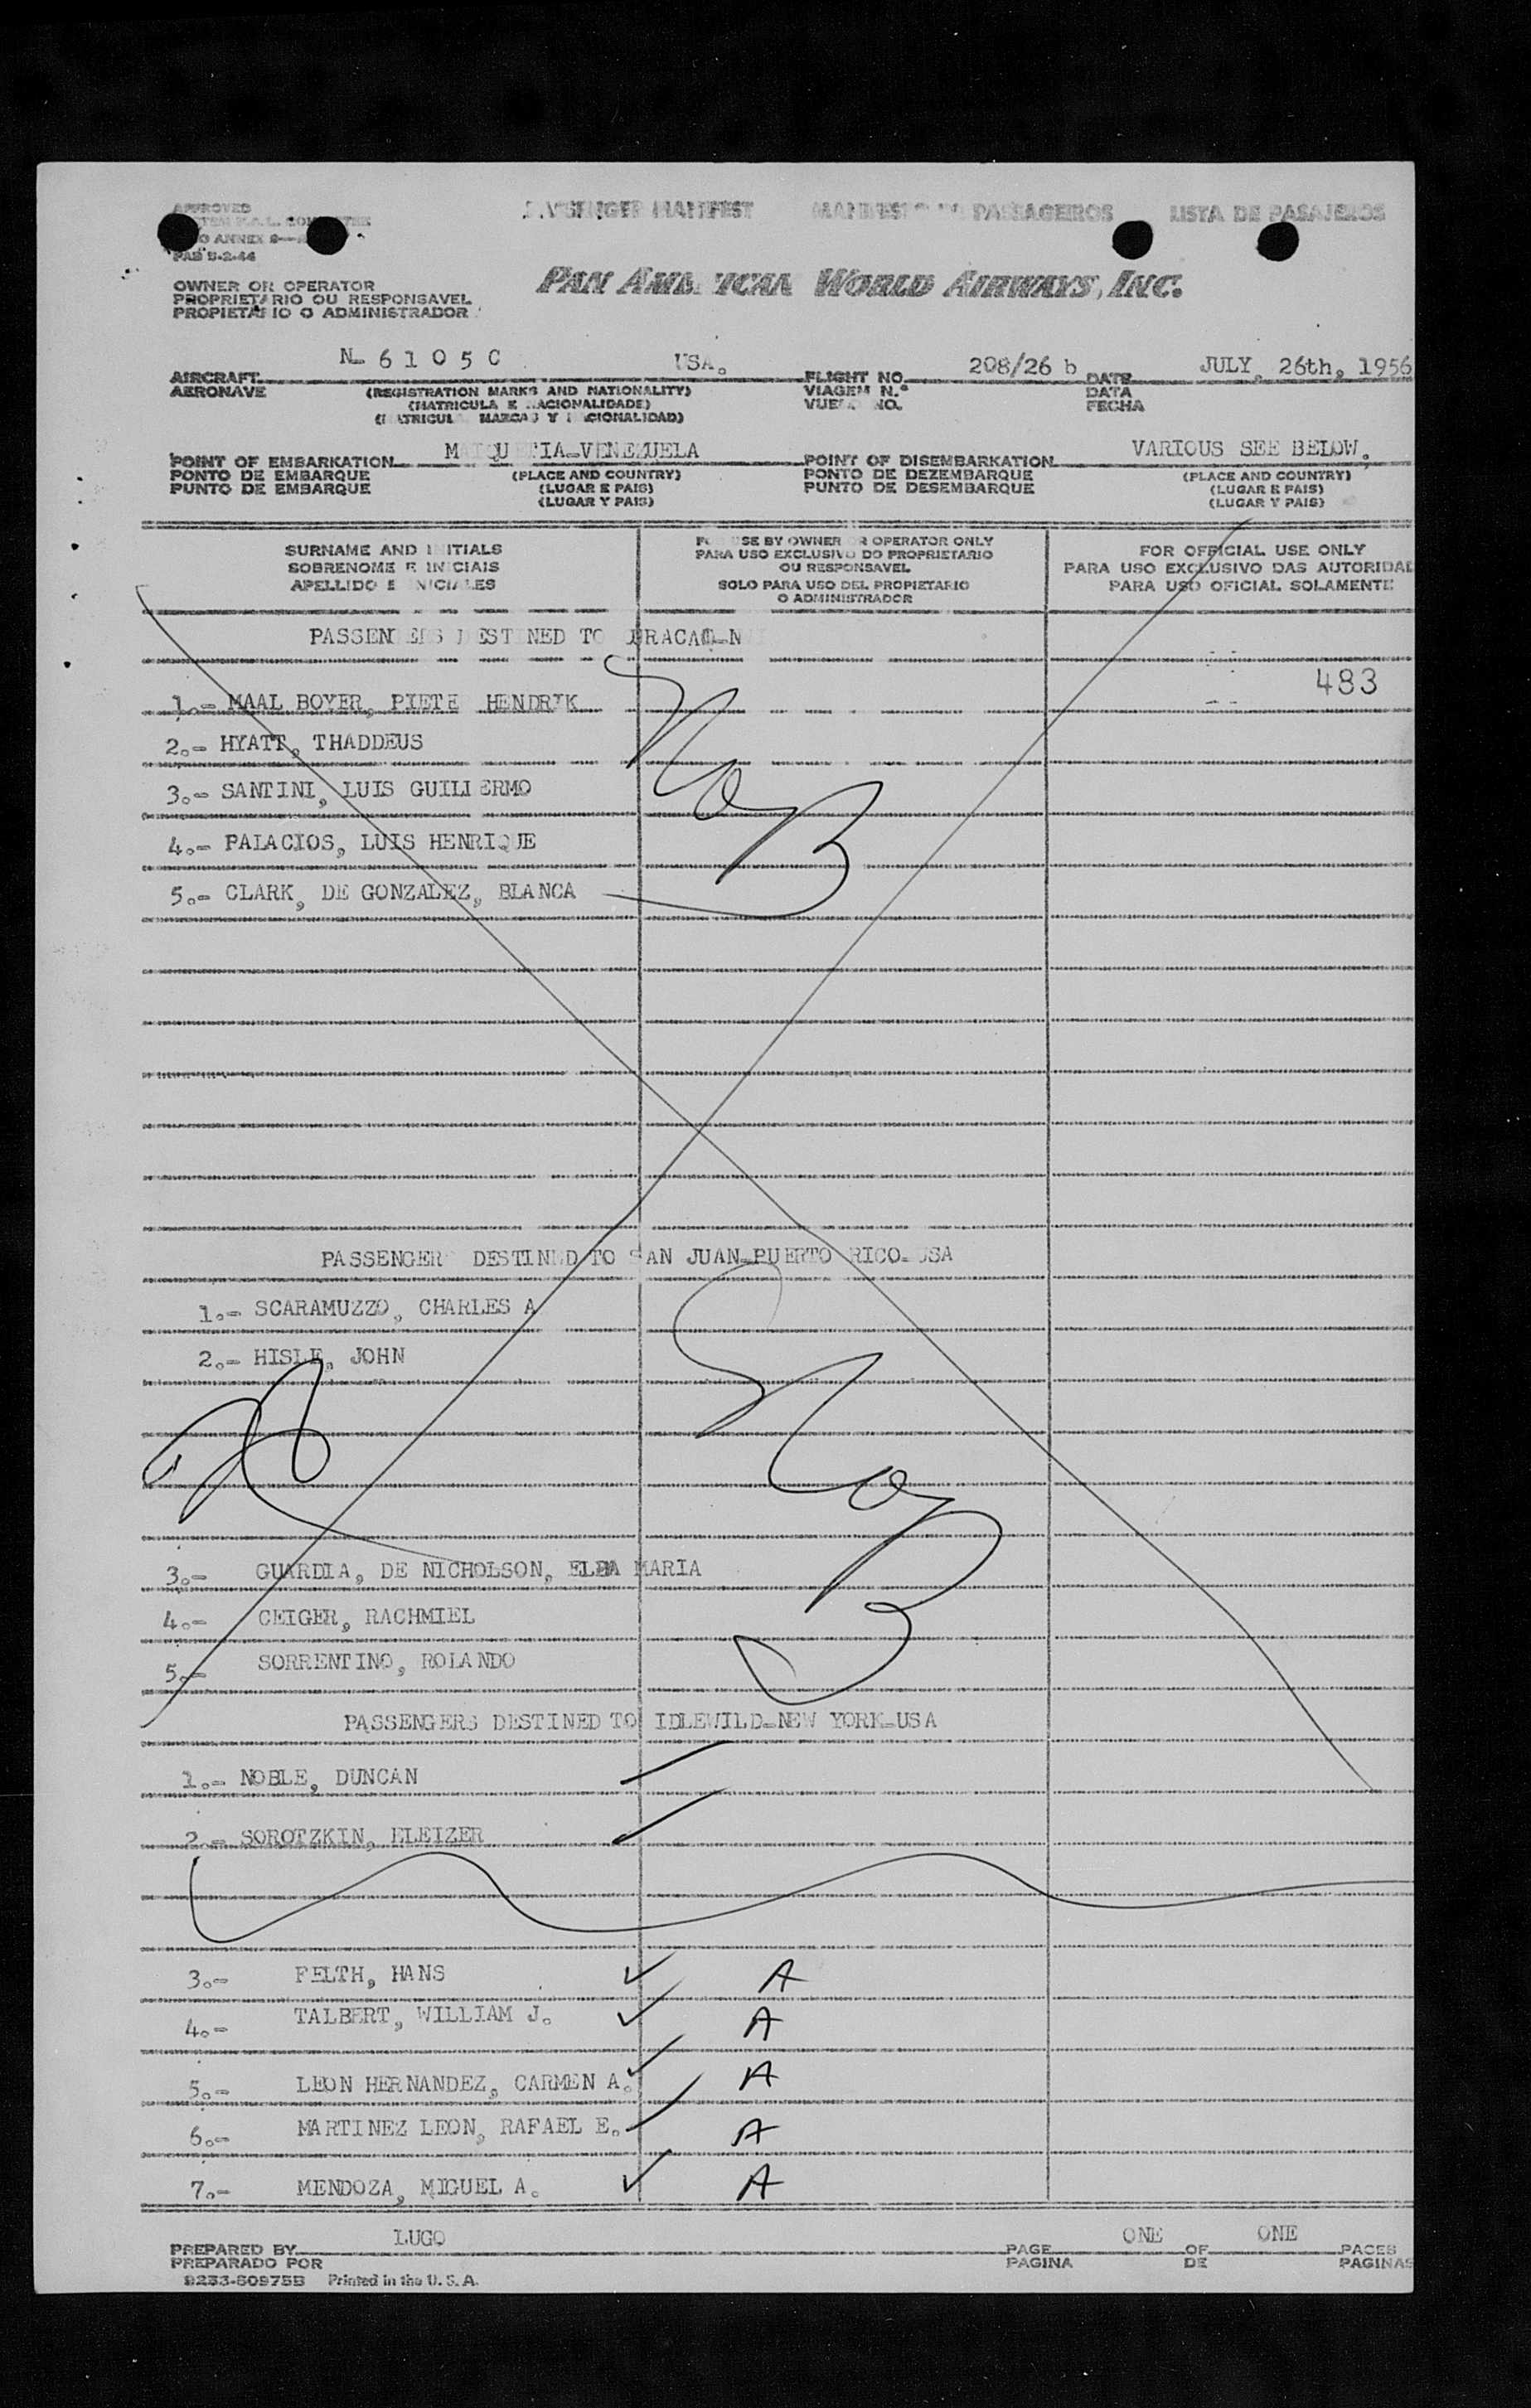 APPROVED
ANNEX 9
PAB 5-2-44
PASSENGER MANIFEST MANIFESTO DE PASSAGEIROS LISTA DE PASAJEROS
OWNER OR OPERATOR
PROPRIETARIO OU RESPONSAVEL
PROPIETARIO O ADMINISTRADOR
PAN AMERICAN WORLD AIRWAYS, INC.
AIRCRAFT N- 6 1 0 5 C USA. FLIGHT NO. 208/26 b DATE JULY, 26th, 1956
AERONAVE (REGISTRATION MARKS AND NATIONALITY) VIAGEM N.º DATA
(MATRICULA E NACIONALIDADE) VUELO NO. FECHA
(MATRICULA MARCAS Y NACIONALIDAD)
POINT OF EMBARKATION MAIQUETIA-VENEZUELA POINT OF DISEMBARKATION VARIOUS SEE BELOW.
PONTO DE EMBARQUE (PLACE AND COUNTRY) PONTO DE DEZEMBARQUE (PLACE AND COUNTRY)
PUNTO DE EMBARQUE (LUGAR E PAIS) PUNTO DE DESEMBARQUE (LUGAR E PAIS)
(LUGAR Y PAIS) (LUGAR Y PAIS)
SURNAME AND INITIALS
SOBRENOME E INICIAIS
APELLIDO E INICIALES
FOR USE BY OWNER OR OPERATOR ONLY
PARA USO EXCLUSIVO DO PROPRIETARIO
OU RESPONSAVEL
SOLO PARA USO DEL PROPIETARIO
O ADMINISTRADOR
FOR OFFICIAL USE ONLY
PARA USO EXCLUSIVO DAS AUTORIDAD
PARA USO OFICIAL SOLAMENTE
PASSENGERS DESTINED TO
483
1.- MAAL BOYER, PIETE HENDRIK
2.- HYATT, THADDEUS
3.- SANTINI, LUIS GUILLERMO
4.- PALACIOS, LUIS HENRIQUE
5.- CLARK, DE GONZALEZ, BLANCA
PASSENGERS DESTINED TO SAN JUAN-PUERTO RICO-USA
1.- SCARAMUZZO, CHARLES A
2.- HISLE, JOHN
3.- GUARDIA, DE NICHOLSON, ELBA MARIA
4.- CEIGER, RACHMIEL
5.- SORRENTINO, ROLANDO
PASSENGERS DESTINED TO IDLEWILD-NEW YORK-USA
1.- NOBLE, DUNCAN
2.- SOROTZKIN, ELEIZER
3.- FELTH, HANS A
4.- TALBERT, WILLIAM J. A
5.- LEON HERNANDEZ, CARMEN A. A
6.- MARTINEZ LEON, RAFAEL E. A
7.- MENDOZA, MIGUEL A. A
PREPARED BY LUGO PAGE ONE OF ONE PAGES
PREPARADO POR PAGINA DE PAGINAS
9233-60975B Printed in the U. S. A.